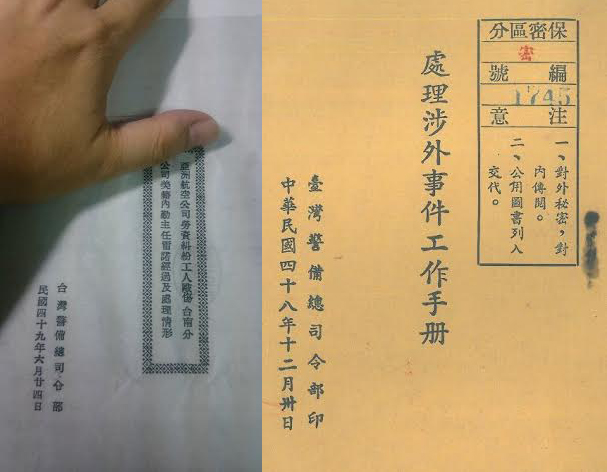 亞洲航空公司勞資糾紛工人毆傷台南分
公司美籍內勤主任雷諾經過及處理情形
台灣警備總司令部
民國四十九年六月廿四日
保密區分
密
編號
1745
注意
一、對外秘密，對
內傳閱。
二、公用圖書列入
交代。
處理涉外事件工作手册
臺灣警備總司令部印
中華民國四十八年十二月卅日